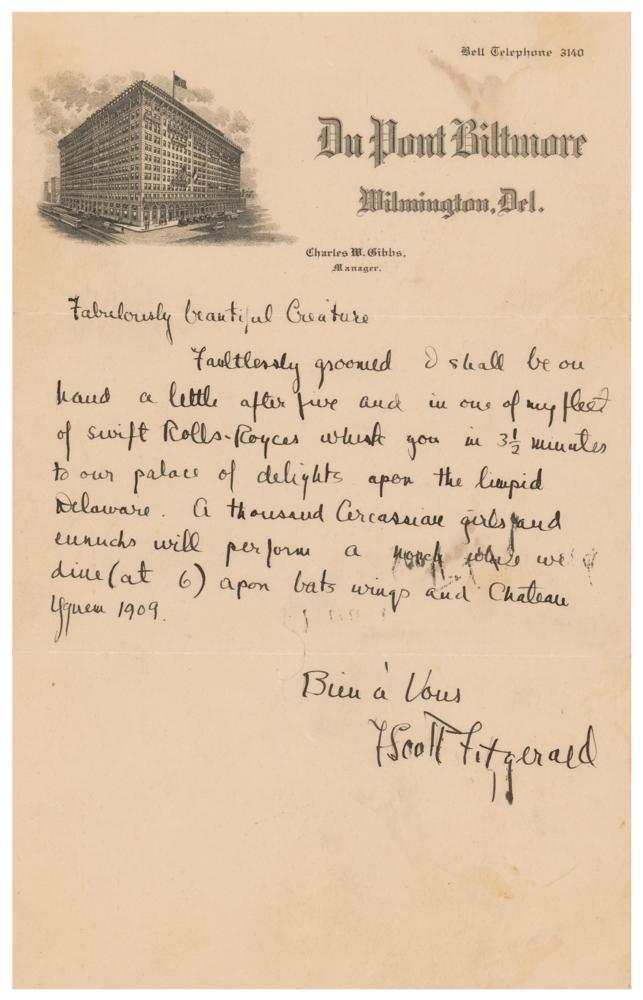 Bell Telephone 3140
Du Pont Biltmore
Wilmington, Del.
Charles W. Gibbs,
Manager.
Fabulously beautiful Creature
Faultlessly groomed I shall be on
hand a little after five and in one of my fleet
of swift Rolls-Royces whisk you in 3½ minutes
to our palace of delights apon the limpid
Delaware. A thousand Cercassian girls and
eunuchs will perform a while we
dine (at 6) apon bats wings and Chateau
Yquem 1909.
Bien à Vous
F Scott Fitzgerald